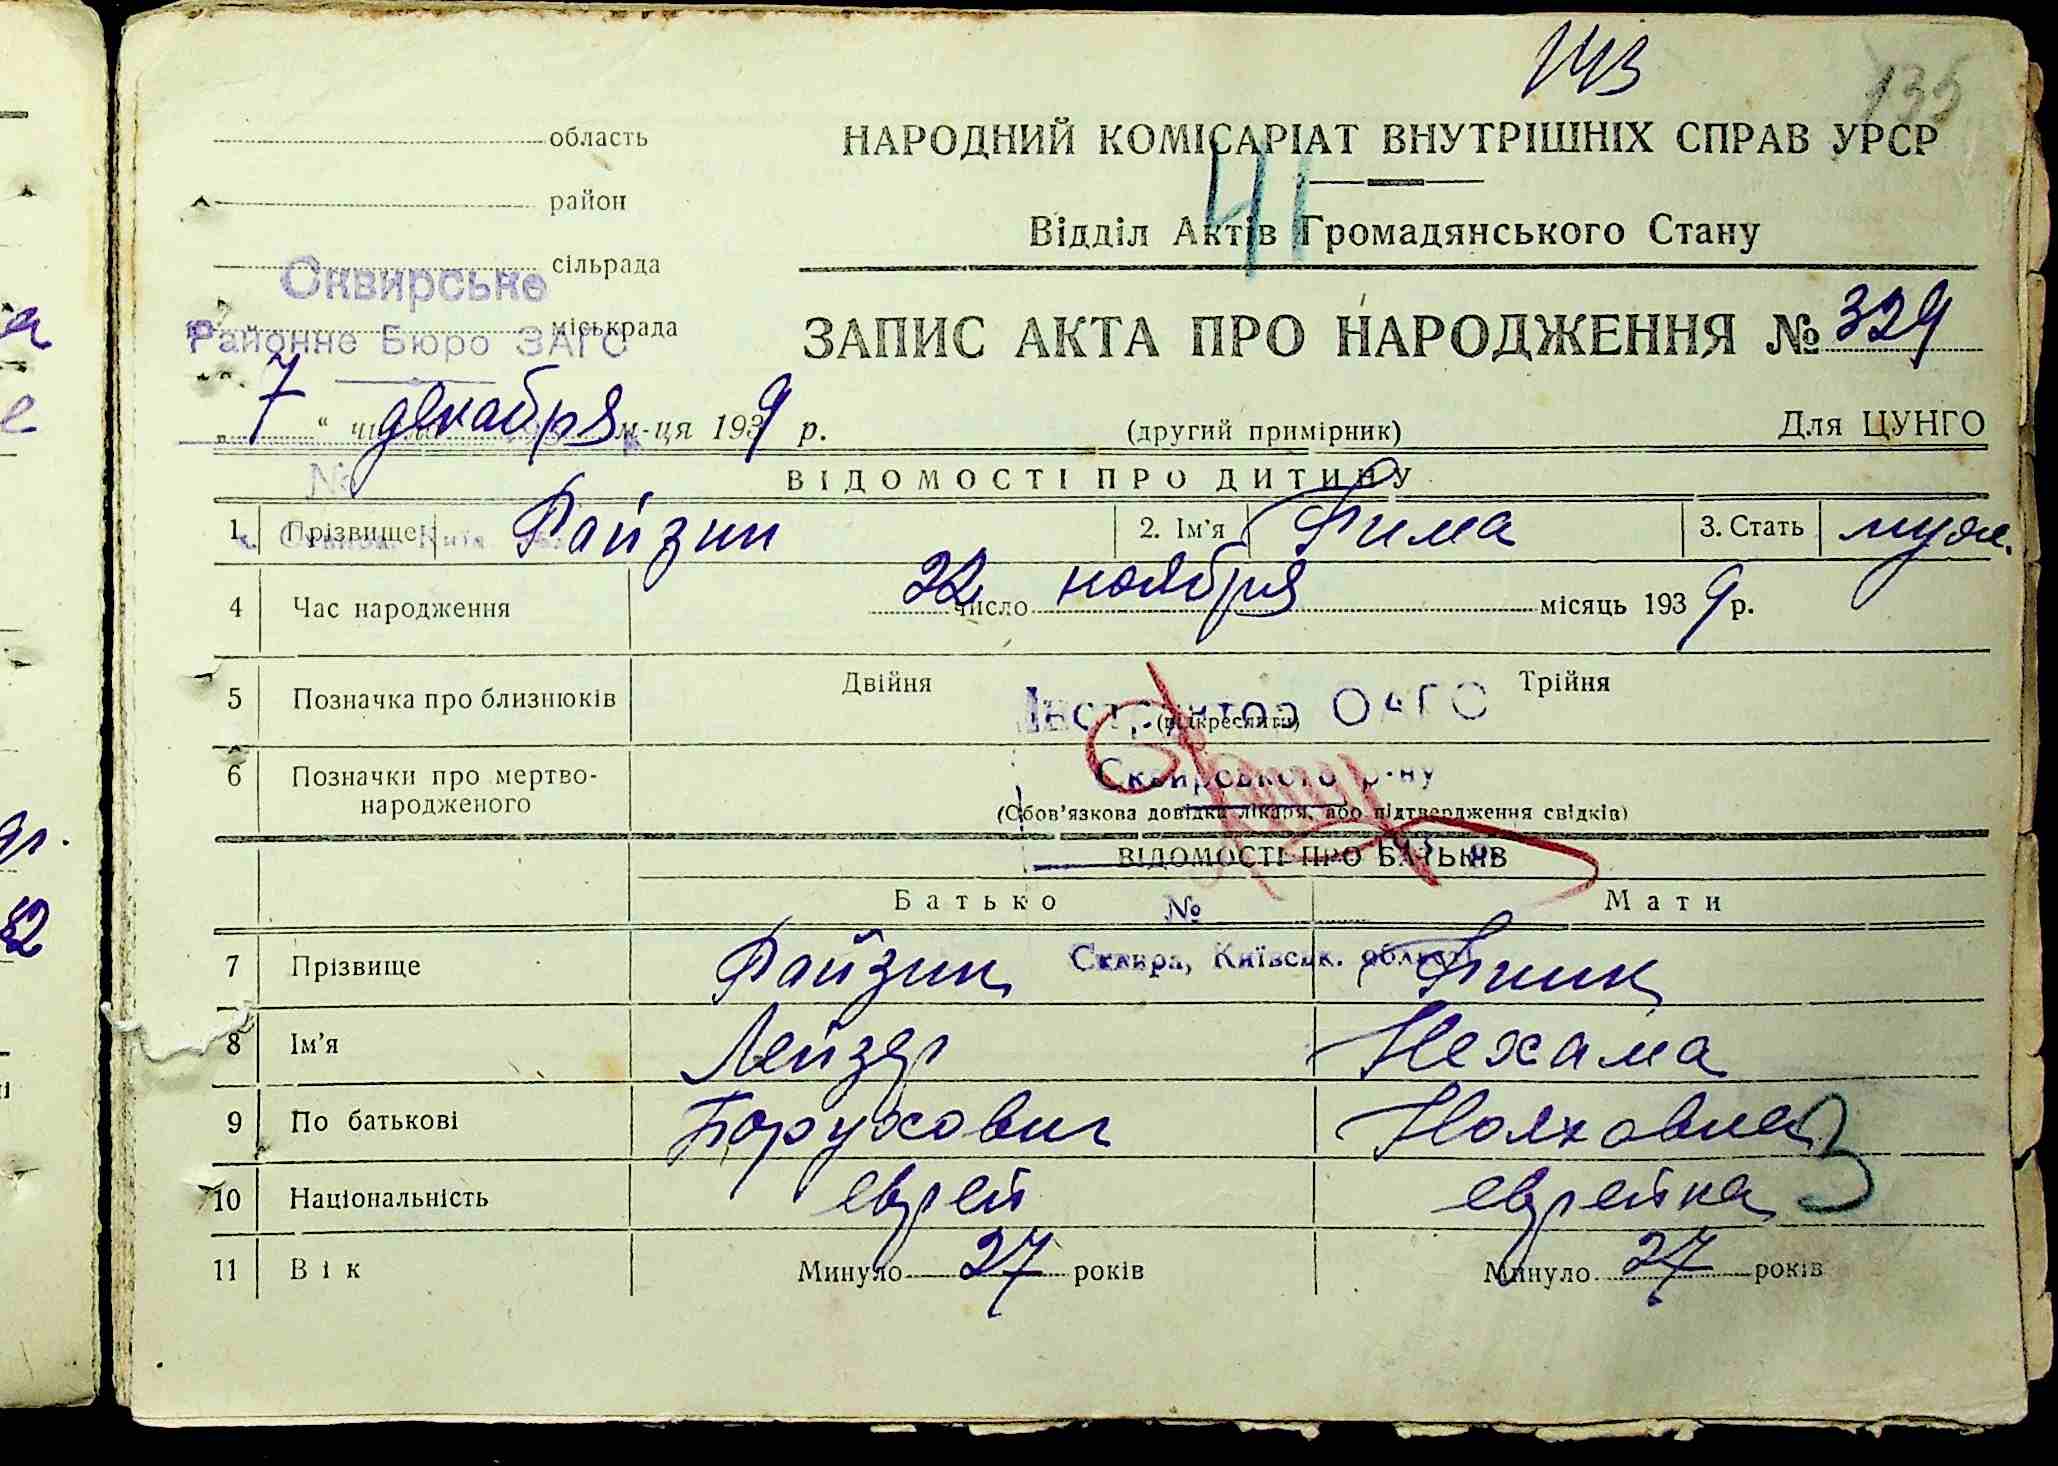 143
135
область
НАРОДНИЙ КОМІСАРІАТ ВНУТРІШНІХ СПРАВ УРСР
район
41
Відділ Актів Громадянського Стану
сільрада
Сквирське
міськрада
Районне Бюро ЗАГС
ЗАПИС АКТА ПРО НАРОДЖЕННЯ № 329
„ 7 “ числа декабря м-ця 1939 р.
(другий примірник)
Для ЦУНГО
№
ВІДОМОСТІ ПРО ДИТИНУ
1 Прізвище Файзин 2. Ім'я Рима 3. Стать муж.
4 Час народження 22 число ноября місяць 1939 р.
5 Позначка про близнюків Двійня Трійня
(підкреслити)
Інструктор ОАГС
6 Позначки про мертво-
народженого
Сквирського р-ну
(Обов'язкова довідка лікаря, або підтвердження свідків)
ВІДОМОСТІ ПРО БАТЬКІВ
Батько Мати
№
7 Прізвище Файзин
Сквира, Київськ. області
8 Ім'я Лейзер Нехама
9 По батькові Борухович
3
10 Національність еврей еврейка
11 Вік Минуло 27 років Минуло 27 років